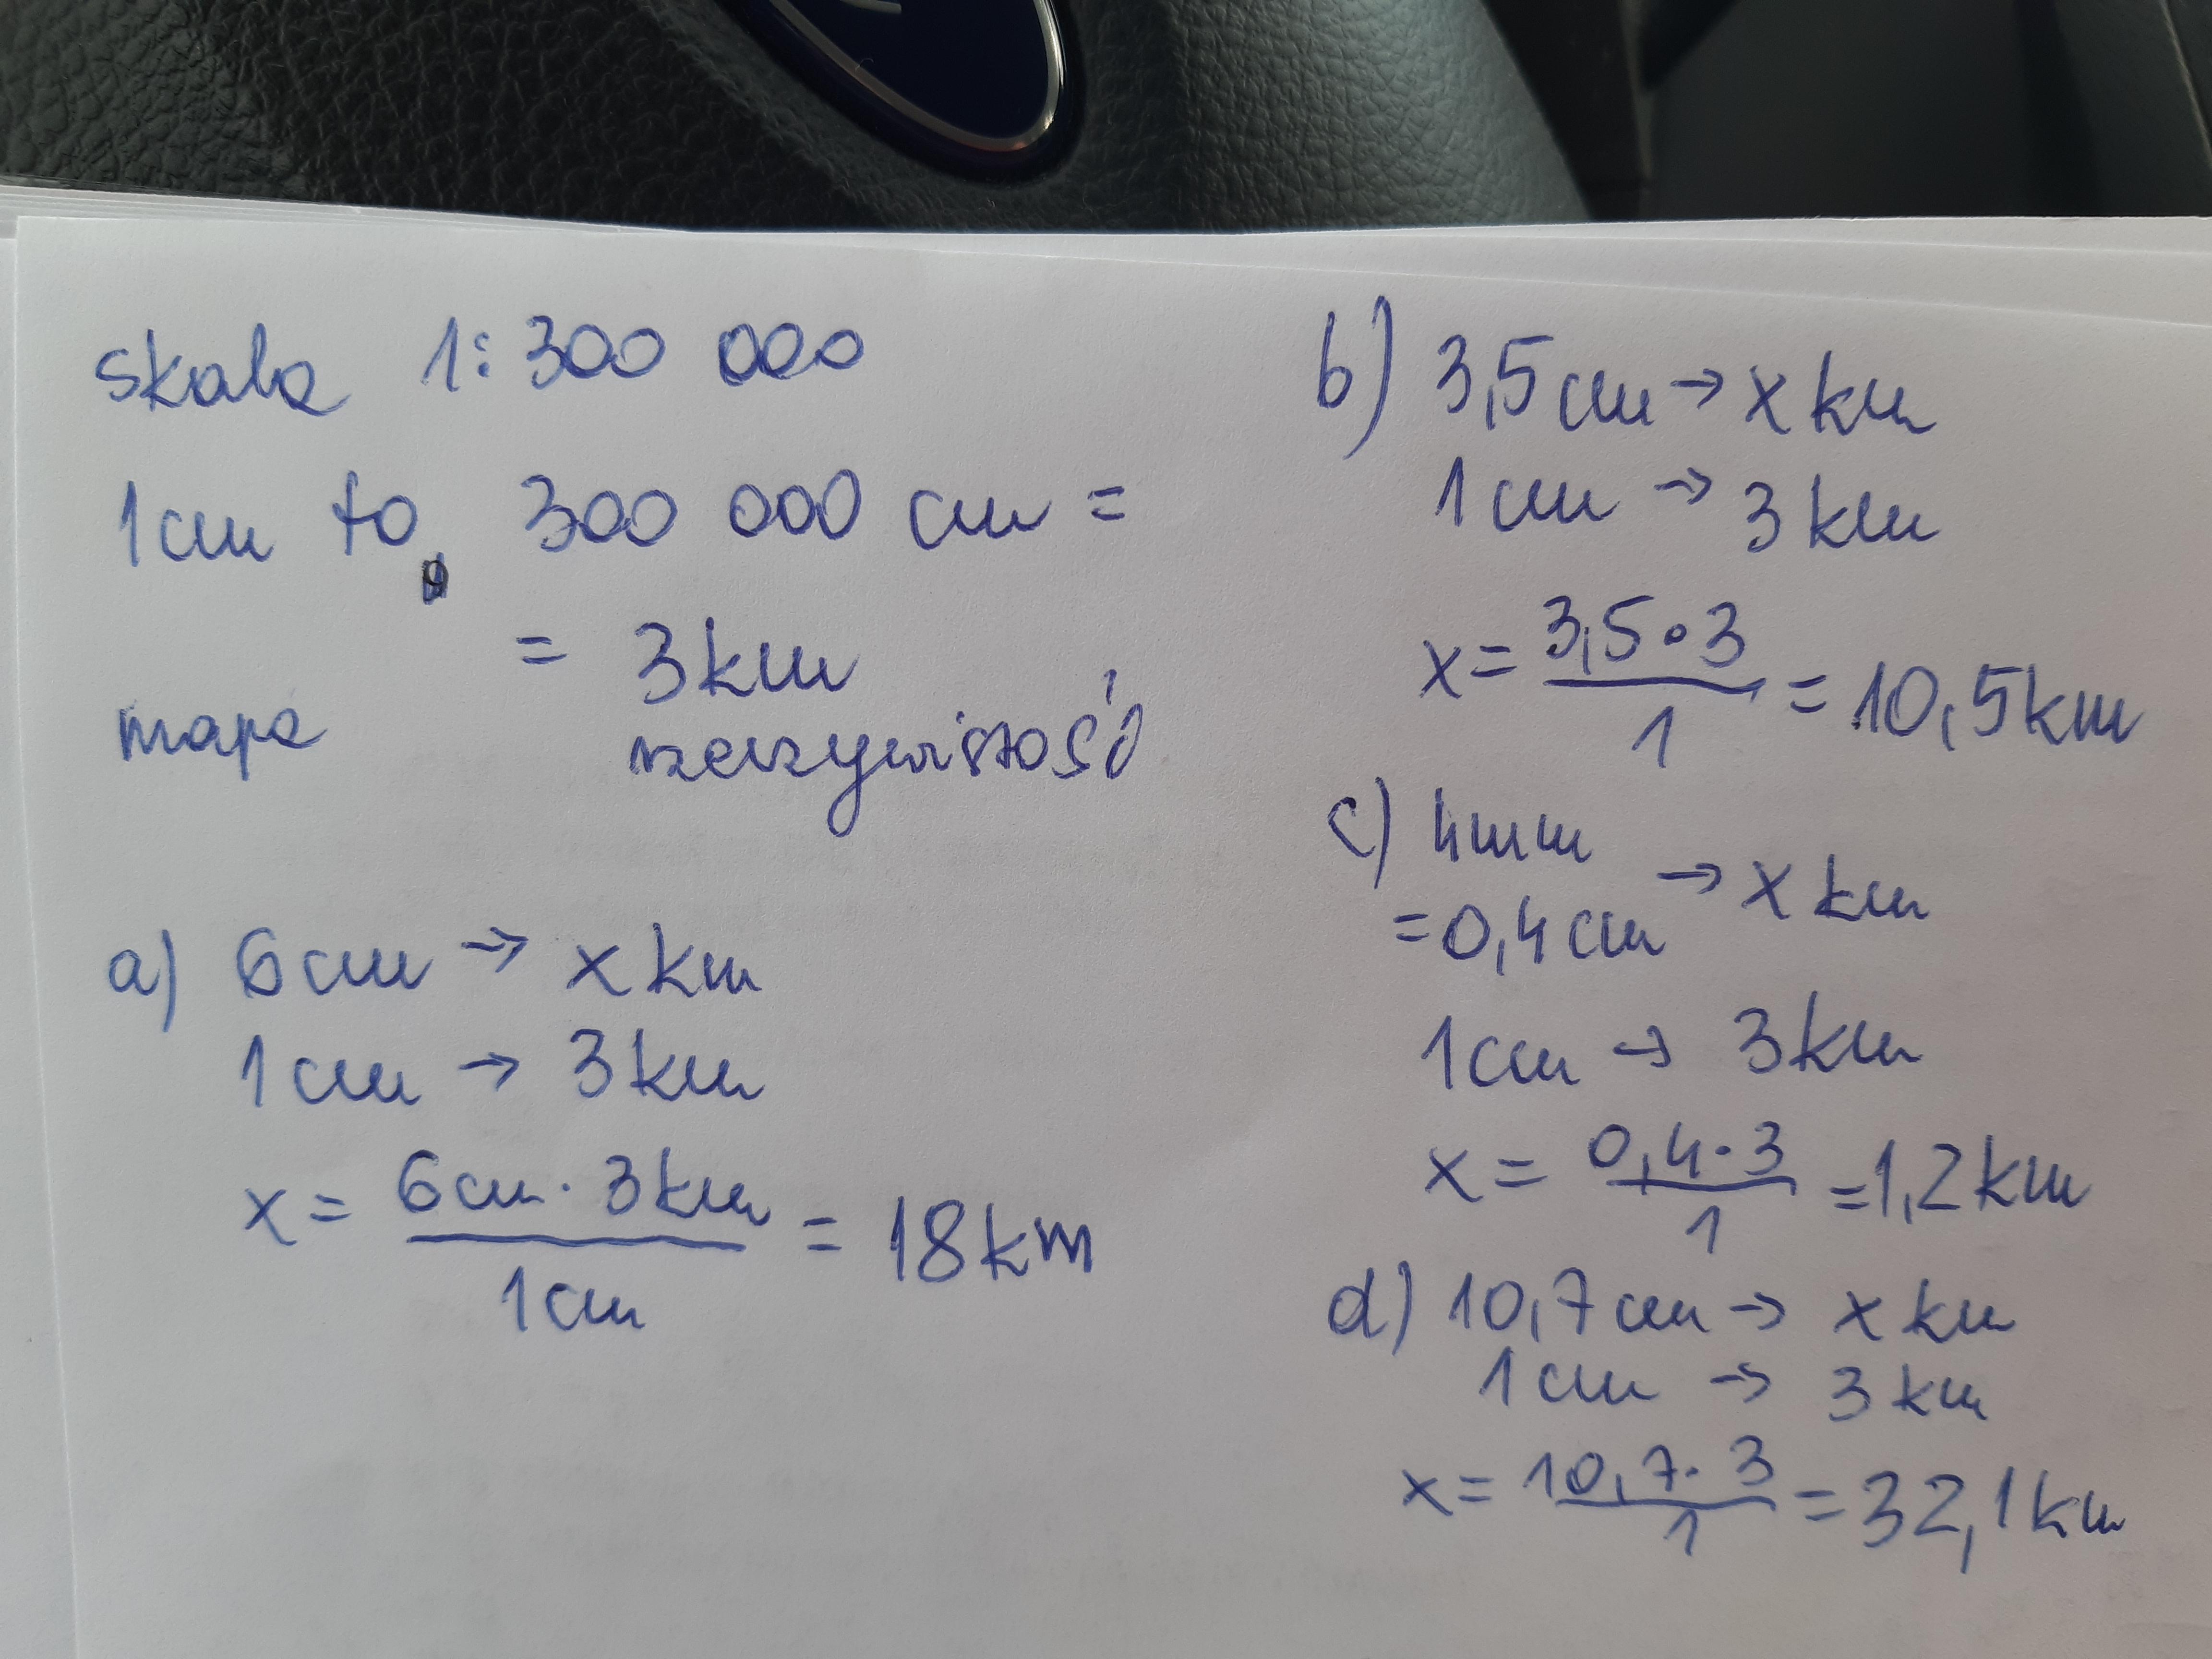 skala 1:300 000
1cm to 300 000 cm =
= 3km
mapa rzeczywistość
a) 6cm → x km
1cm → 3km
x = 6cm · 3km / 1cm = 18km
b) 3,5cm → x km
1cm → 3km
x = 3,5 · 3 / 1 = 10,5km
c) 4mm
= 0,4cm → x km
1cm → 3km
x = 0,4 · 3 / 1 = 1,2km
d) 10,7cm → x km
1cm → 3km
x = 10,7 · 3 / 1 = 32,1km